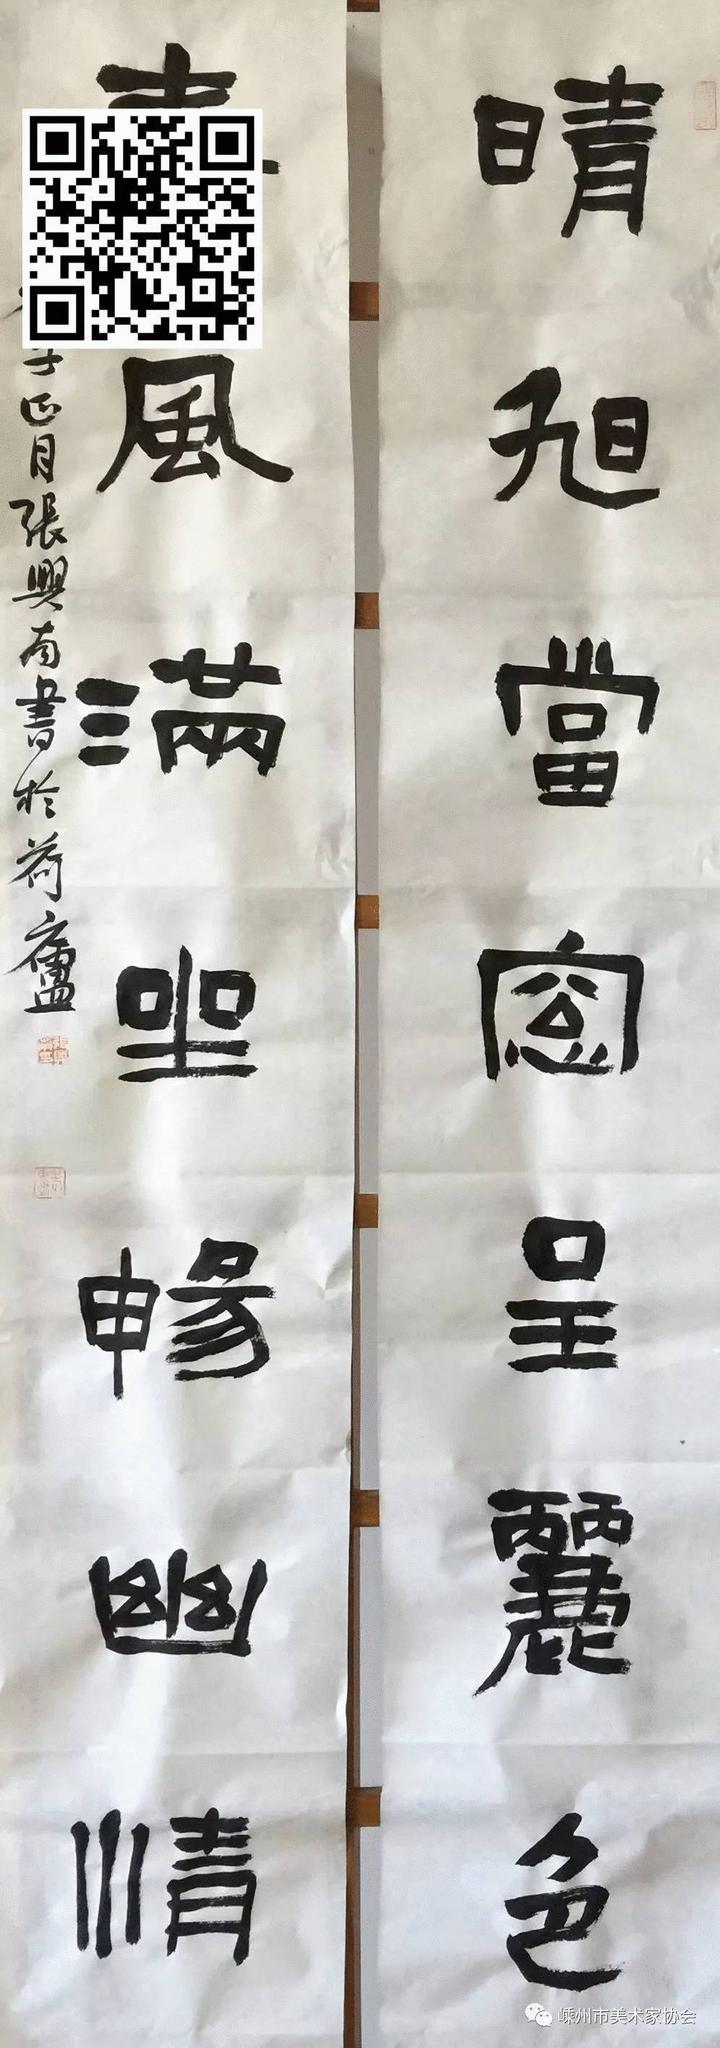 晴旭當窗呈麗色
風滿坐暢幽情
子正月張興南書於荷廬
嵊州市美术家协会